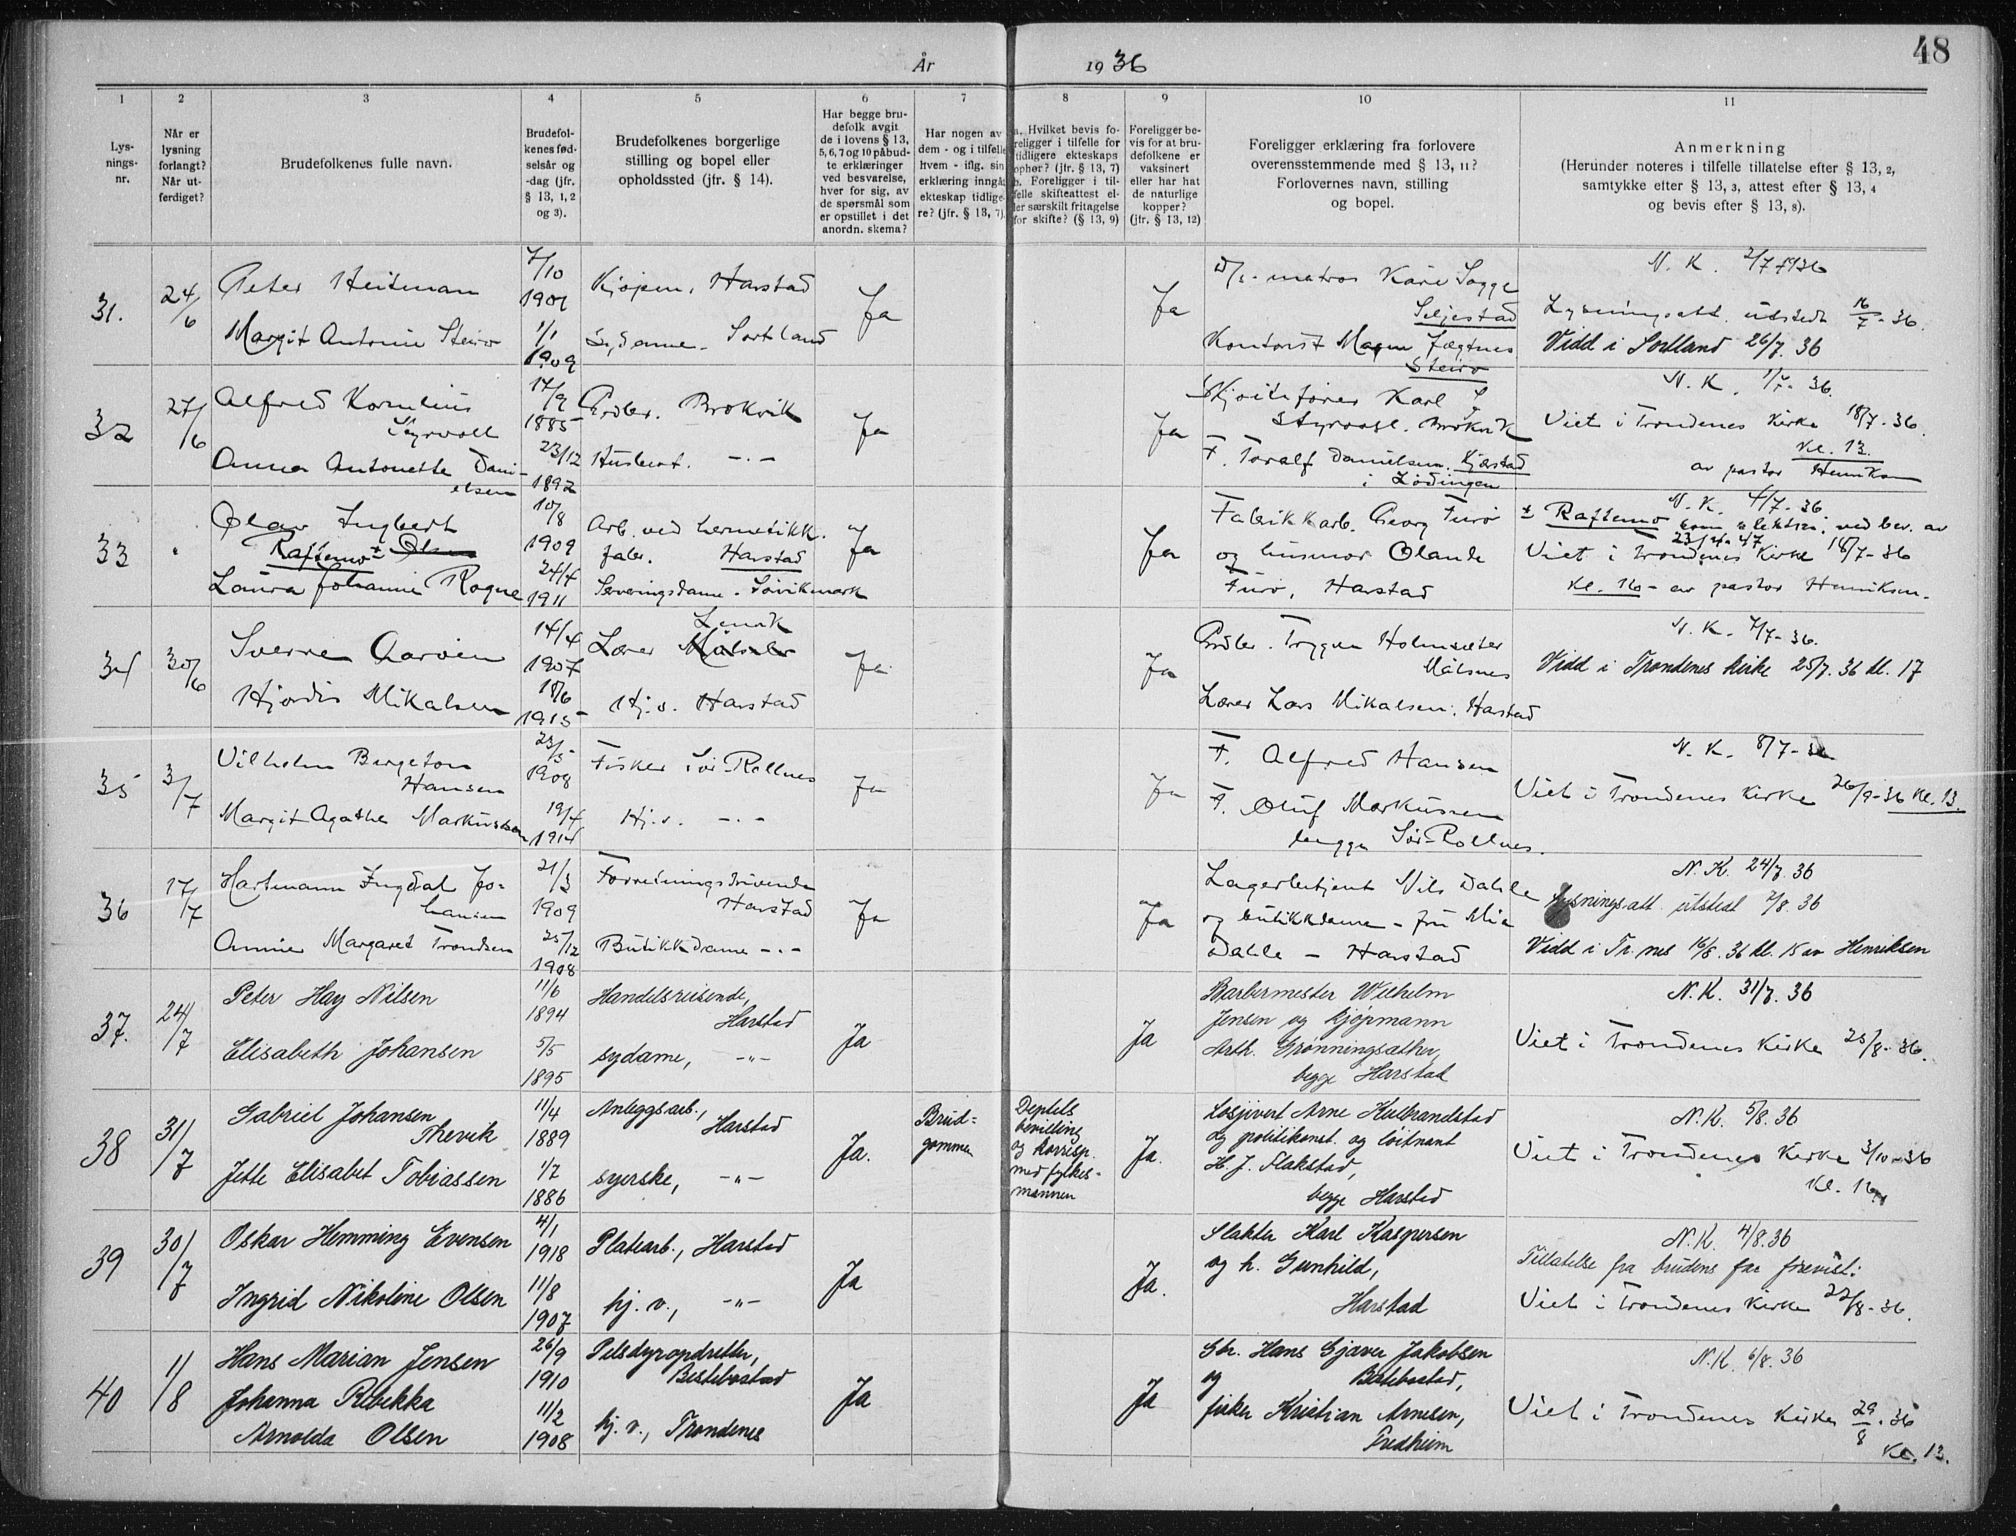 48
År 1936
1
Lys-
nings-
nr.
2
Når er
lysning
forlangt?
Når ut-
ferdiget?
3
Brudefolkenes fulle navn.
4
Brudefol-
kenes fød-
selsår og
-dag (jfr.
§ 13, 1, 2
og 3).
5
Brudefolkenes borgerlige
stilling og bopel eller
opholdssted (jfr. § 14).
6
Har begge bru-
defolk avgit
de i lovens § 13,
5, 6, 7 og 10 påbud-
te erklæringer
ved besvarelse,
hver for sig, av
de spørsmål som
er opstillet i det
anordn. skema?
7
Har nogen av
dem - og i tilfelle
hvem - iflg. sin
erklæring inngå
ekteskap tidlige-
re? (jfr. § 13, 7).
8
a. Hvilket bevis fo-
religger i tilfelle for
tidligere ekteskaps
ophør? (jfr. § 13, 7)
b. Foreligger i til-
felle skifteattest el-
ler særskilt fritagelse
for skifte? (§ 13, 9)
9
Foreligger be-
vis for at bru-
defolkene er
vaksinert
eller har hat
de naturlige
kopper?
(jfr. § 13, 12)
10
Foreligger erklæring fra forlovere
overensstemmende med § 13, 11?
Forlovernes navn, stilling
og bopel.
11
Anmerkning
(Herunder noteres i tilfelle tillatelse efter § 13, 2,
samtykke efter § 13, 3, attest efter § 13, 4
og bevis efter § 13, 8).
31.
24/6
Peter Heitman
Margit Antonie Steiro
7/10
1901
1/1
1909
Kjøpm., Harstad
Sydame - Sortland
Ja
Ja
matros Kåre Sagge
Seljestad
Kontorist Magn Jægtnes
Steiro
N. K. 2/7 1936
Lysningsatt. utstedt 16/7 - 36.
Vidd i Sortland 26/7. 36
32
27/6
Alfred Kornelius
Styrvoll
Anna Antonette Dani-
elsen
17/9
1885
23/12
1892
Grdbr. Brokvik
Husbest. -.-
Ja
Ja
Skjøitefører Karl
Styrvoll. Brokvik
F. Toralf Danielsen. Kjæstad
i Lødingen
N. K. 1/7 - 36.
Viet i Trondenes Kirke 18/7 - 36.
Kl. 13.
av pastor Henriksen
33
Olav Ingbert
Raftemo ± Olsen
Laura Johanne Rogne
10/8
1909
24/4
1911
Arb. ved hermetikk.
fabr. Harstad
Serveringsdame - Sørvikmark
Ja
Ja
Fabrikkarb. Georg Furø
og husmor Olande
Furø, Harstad
N. K. 4/7 - 36.
± Raftemo som slektsn. ved bev. av
Viet i Trondenes Kirke 18/7 - 36
Kl. 16 - av pastor Henriksen.
34
30/6
Sverre Aarvein
Hjørdis Mikalsen
14/4
1907
18/6
1915
Lenvik
Lærer Målselv
Hj. v. Harstad
Ja
Ja
Grdbr. Trygve Holmsæter
Målsnes
Lærer Lars Mikalsen, Harstad
N. K. 7/7 - 36.
Vidd i Trondenes kirke 25/7. 36 kl. 17
35
3/7
Vilhelm Bergeton
Hansen
Margit Agathe Markussen
23/5
1908
19/4
1914
Fisker Sør-Rollnes
Hj. v. -.-
Ja
Ja
F. Alfred Hansen
F. Oluf Markussen
begge Sør-Rollnes.
N. K. 8/7 - 36
Viet i Trondenes Kirke 26/9 - 36 Kl. 13.
36
17/7
Hartmann Ingdal Jo-
hansen
Annie Margaret Trondsen
21/3
1909
25/12
1908
Forretningsdrivende
Harstad
Butikkdame -.-
Ja
Ja
Lagerbetjent Nils Dahle
og butikkdame - fru Mia
Dahle - Harstad
N. K. 24/7. 36
Lysningsatt. utstedt 7/8. 36
Vidd i Tr.nes 16/8. 36 kl. 15 av Henriksen
37.
24/7
Peter Hay Nilsen
Elisabeth Johansen
11/6
1894
5/5
1895
Handelsreisende,
Harstad
sydame, -"-
Ja
Ja
Barbermester Wilhelm
Jensen og kjøpmann
Arth. Grønningsæther,
begge Harstad
N. K. 31/7. 36
Viet i Trondenes Kirke 25/8 - 36.
38
31/7
Gabriel Johansen
Thevik
Jette Elisabet Tobiassen
11/4
1889
1/7
1886
Anleggsarb.,
Harstad
syerske, -"-
Ja.
Brud-
gommen
Deptets
bevilling
og korresp.
med fylkes-
mannen
Ja.
Losjivert Arne Hulbrandstad
og politikonst. og løitnant
H. J. Flakstad,
begge Harstad
N. K. 5/8. 36
Viet i Trondenes Kirke 3/10 - 36
Kl. 16
39
30/7
Oskar Hemming Evensen
Ingrid Nikoline Olsen
4/1
1918
11/8
1907
Platearb., Harstad
hj. v., -"-
Ja
Ja.
Slakter Karl Kaspersen
og h. Gunhild,
Harstad
N. K. 4/8. 36
Tillatelse fra brudens far forevist.
Viet i Trondenes Kirke 22/8 - 36.
40
1/8
Hans Marian Jensen
Johanna Rebekka
Arnolda Olsen
26/9
1910
11/2
1908
Pelsdyropdretter,
Bestebostad
hj. v., Trondenes
Ja
Ja
Gbr. Hans Gjæver Jakobsen
og Bestebostad,
fisker Kristian Arnesen,
Fredheim
N. K. 6/8. 36
Viet i Trondenes Kirke 29/8 - 36
Kl. 13.